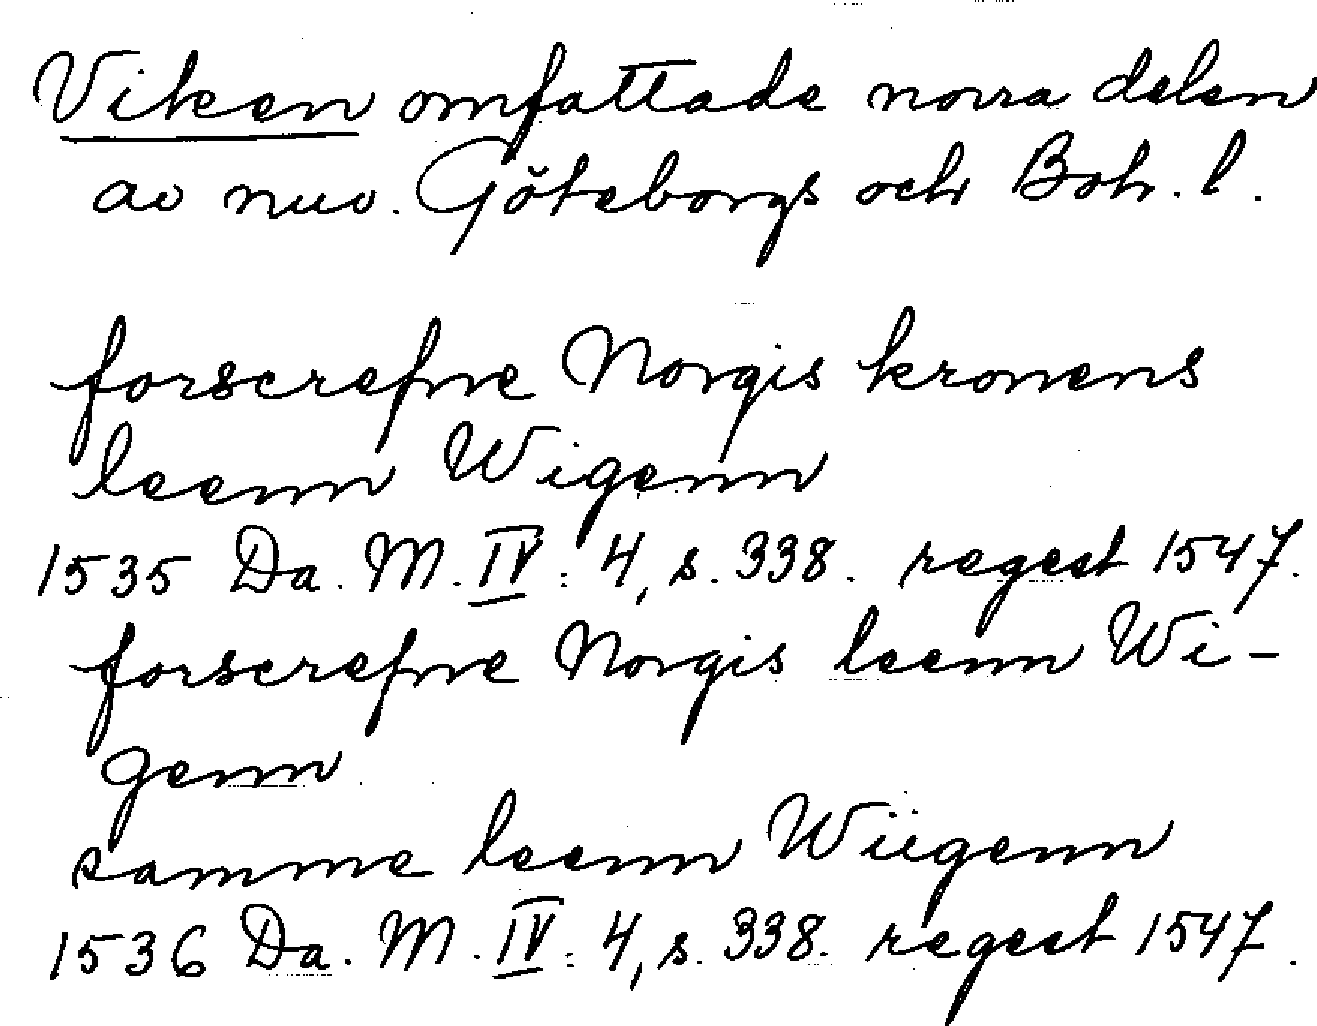 Viken omfattade norra delen
av nuv. Göteborgs och Boh. l.
forscrefne Norgis kronens
leenn Wigenn
1535 Da. M. IV: 4, s. 338. regest 1547.
forscrefne Norgis leenn Wi-
genn
samme leenn Wiigenn
1536 Da. M. IV: 4, s. 338. regest 1547.